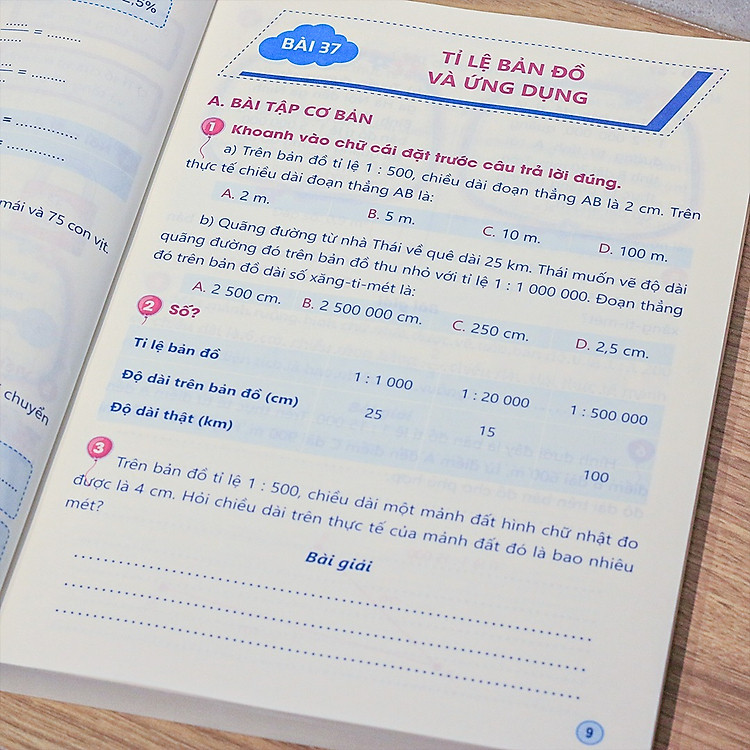 2.5%
...... = .........
...... = .........
mái và 75 con vịt.
chuyển
BÀI 37
TỈ LỆ BẢN ĐỒ
VÀ ỨNG DỤNG
A. BÀI TẬP CƠ BẢN
1 Khoanh vào chữ cái đặt trước câu trả lời đúng.
a) Trên bản đồ tỉ lệ 1 : 500, chiều dài đoạn thẳng AB là 2 cm. Trên
thực tế chiều dài đoạn thẳng AB là:
A. 2 m. B. 5 m. C. 10 m. D. 100 m.
b) Quãng đường từ nhà Thái về quê dài 25 km. Thái muốn vẽ độ dài
quãng đường đó trên bản đồ thu nhỏ với tỉ lệ 1 : 1 000 000. Đoạn thẳng
đó trên bản đồ dài số xăng-ti-mét là:
A. 2 500 cm. B. 2 500 000 cm. C. 250 cm. D. 2,5 cm.
2 Số?
Tỉ lệ bản đồ 1 : 1 000 1 : 20 000 1 : 500 000
Độ dài trên bản đồ (cm) 25 15
Độ dài thật (km) 100
3 Trên bản đồ tỉ lệ 1 : 500, chiều dài một mảnh đất hình chữ nhật đo
được là 4 cm. Hỏi chiều dài trên thực tế của mảnh đất đó là bao nhiêu
mét?
Bài giải
9